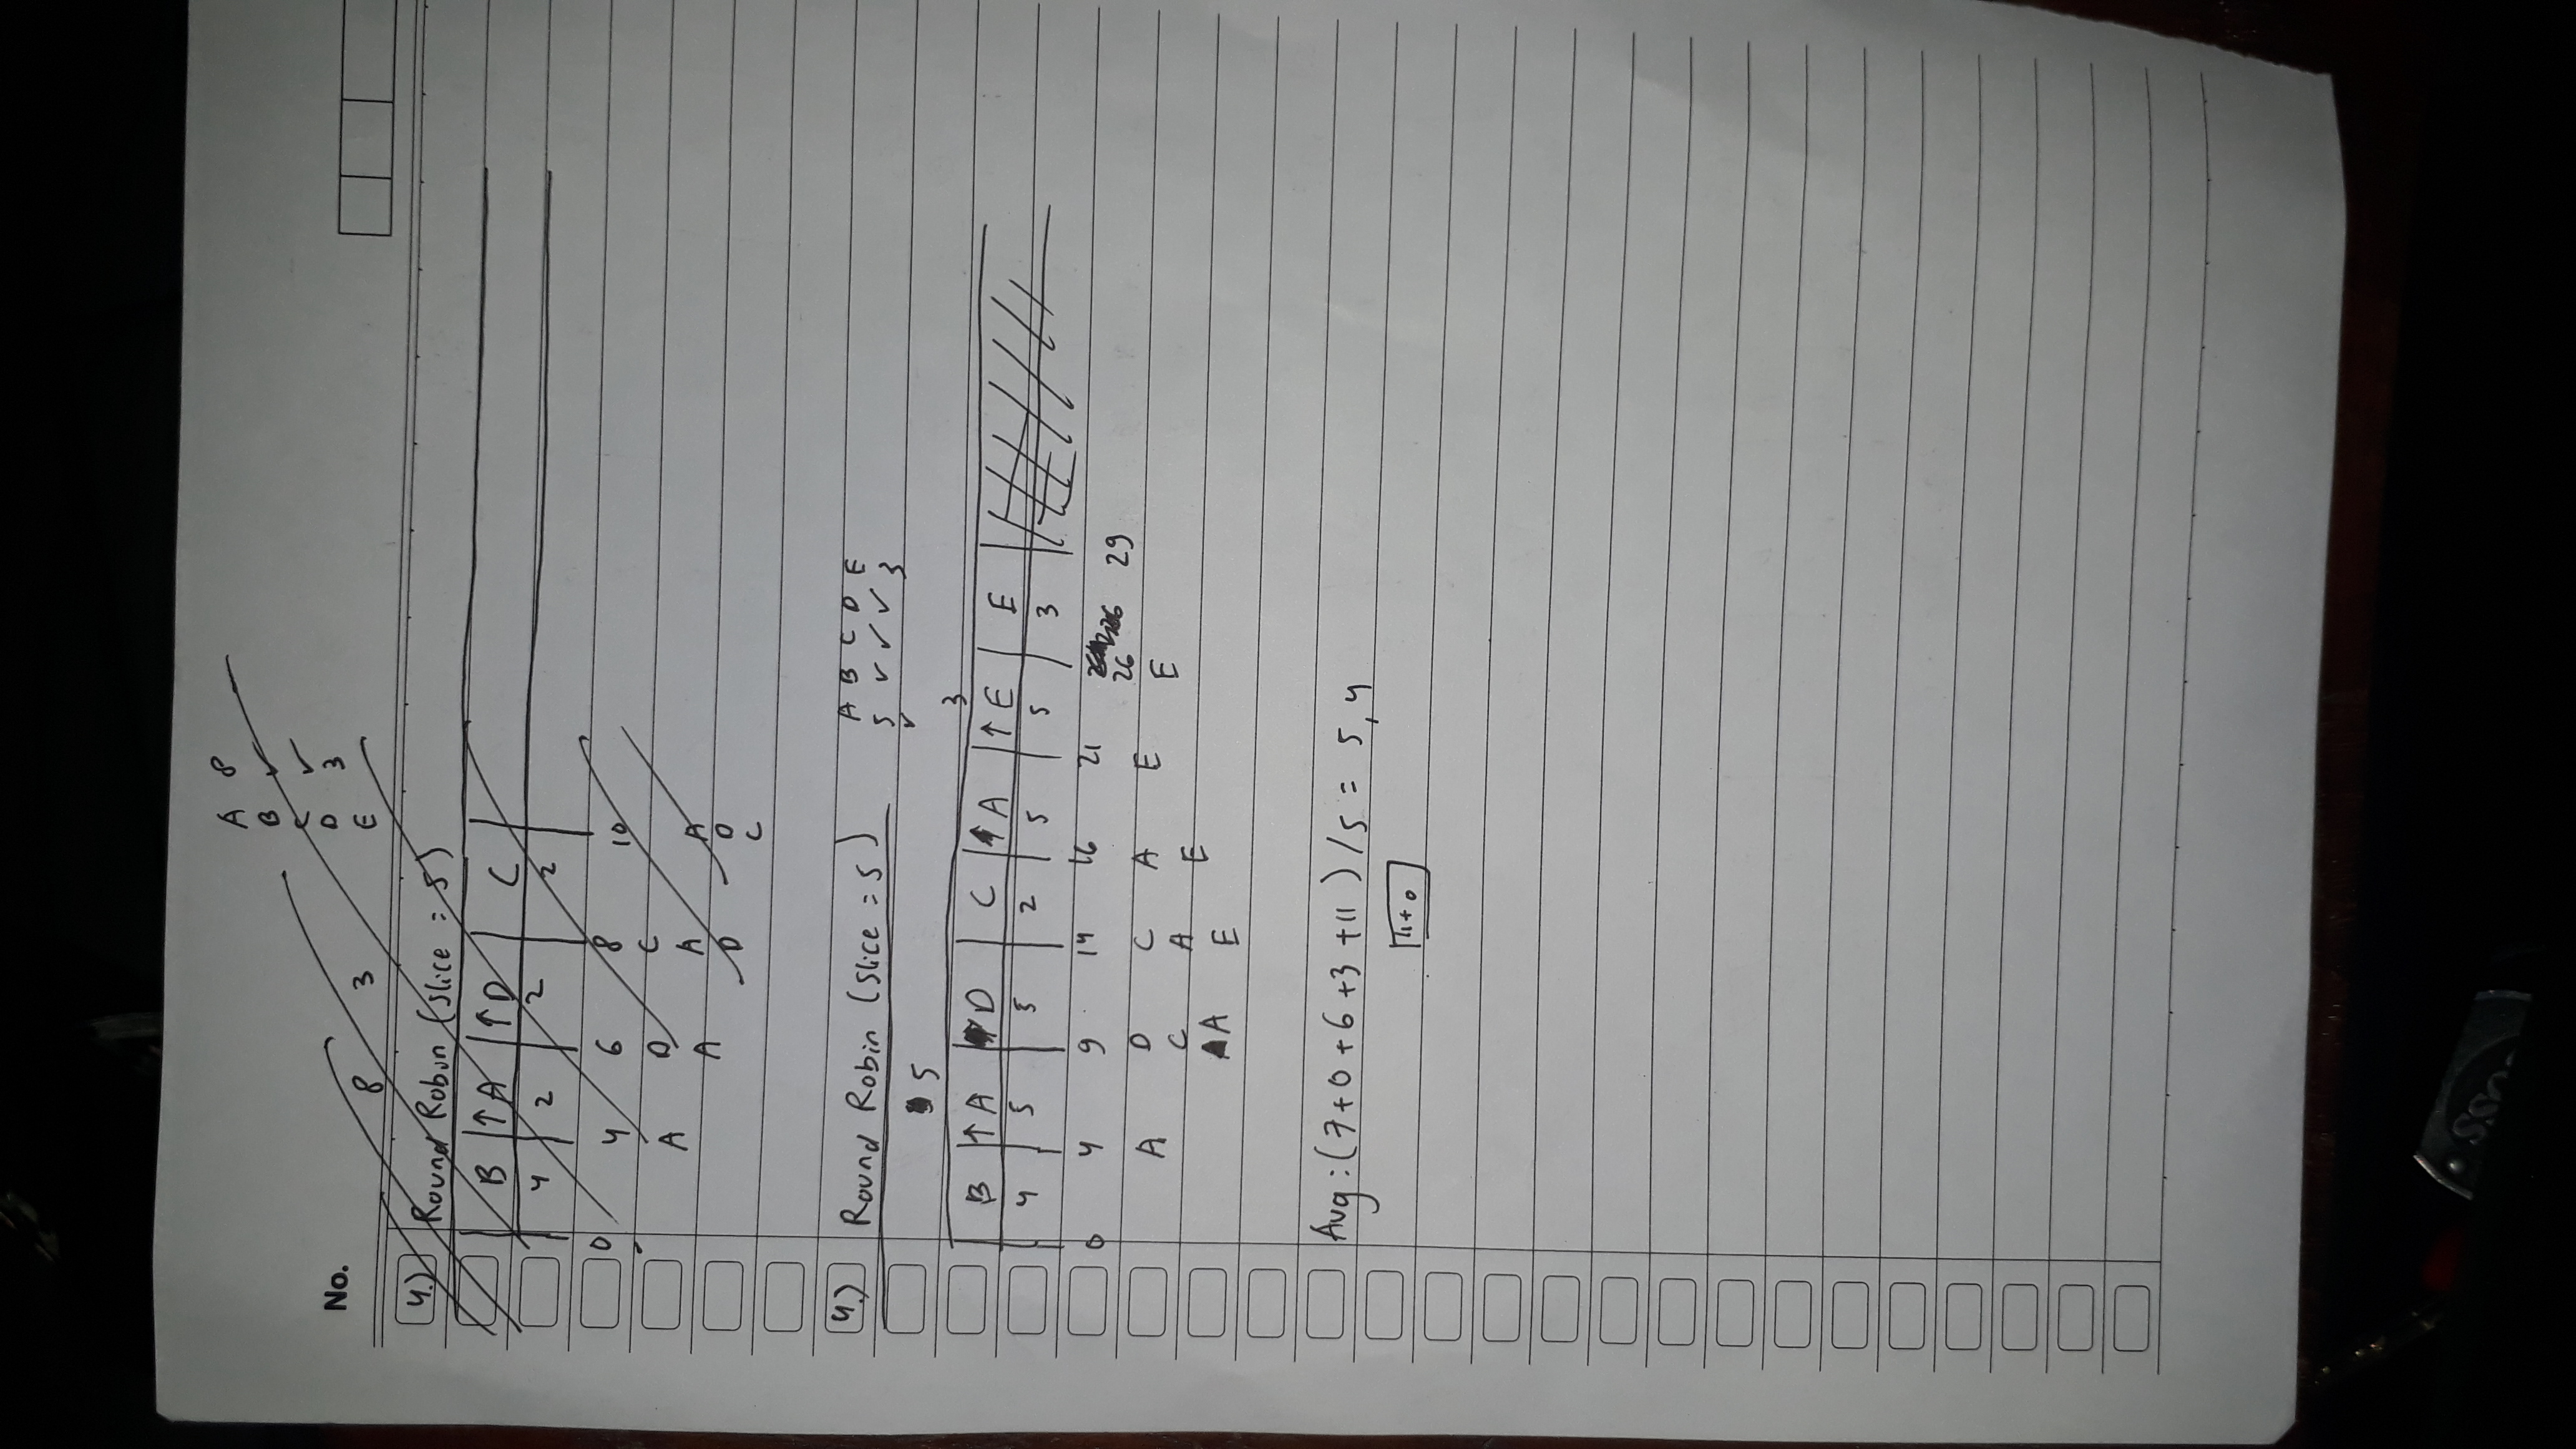 A 8
B ✓
C ✓
No.
D 3
8 3
E
4.) Round Robin (Slice = 5)
B ↑A ↑D C
4 2 2 2
0 4 6 8 10
A D C A
A A D
D C
4.) Round Robin (Slice = 5)
A B C D E
5 ✓ ✓ ✓ 3
✓
5
3
B ↑A D C ↑A ↑E E
4 5 5 2 5 5 3
0 4 9 14 16 21 26 29
A D C A E E
C A E
A E
Avg : (7+0+6+3+11) /5 = 5,4
11+0